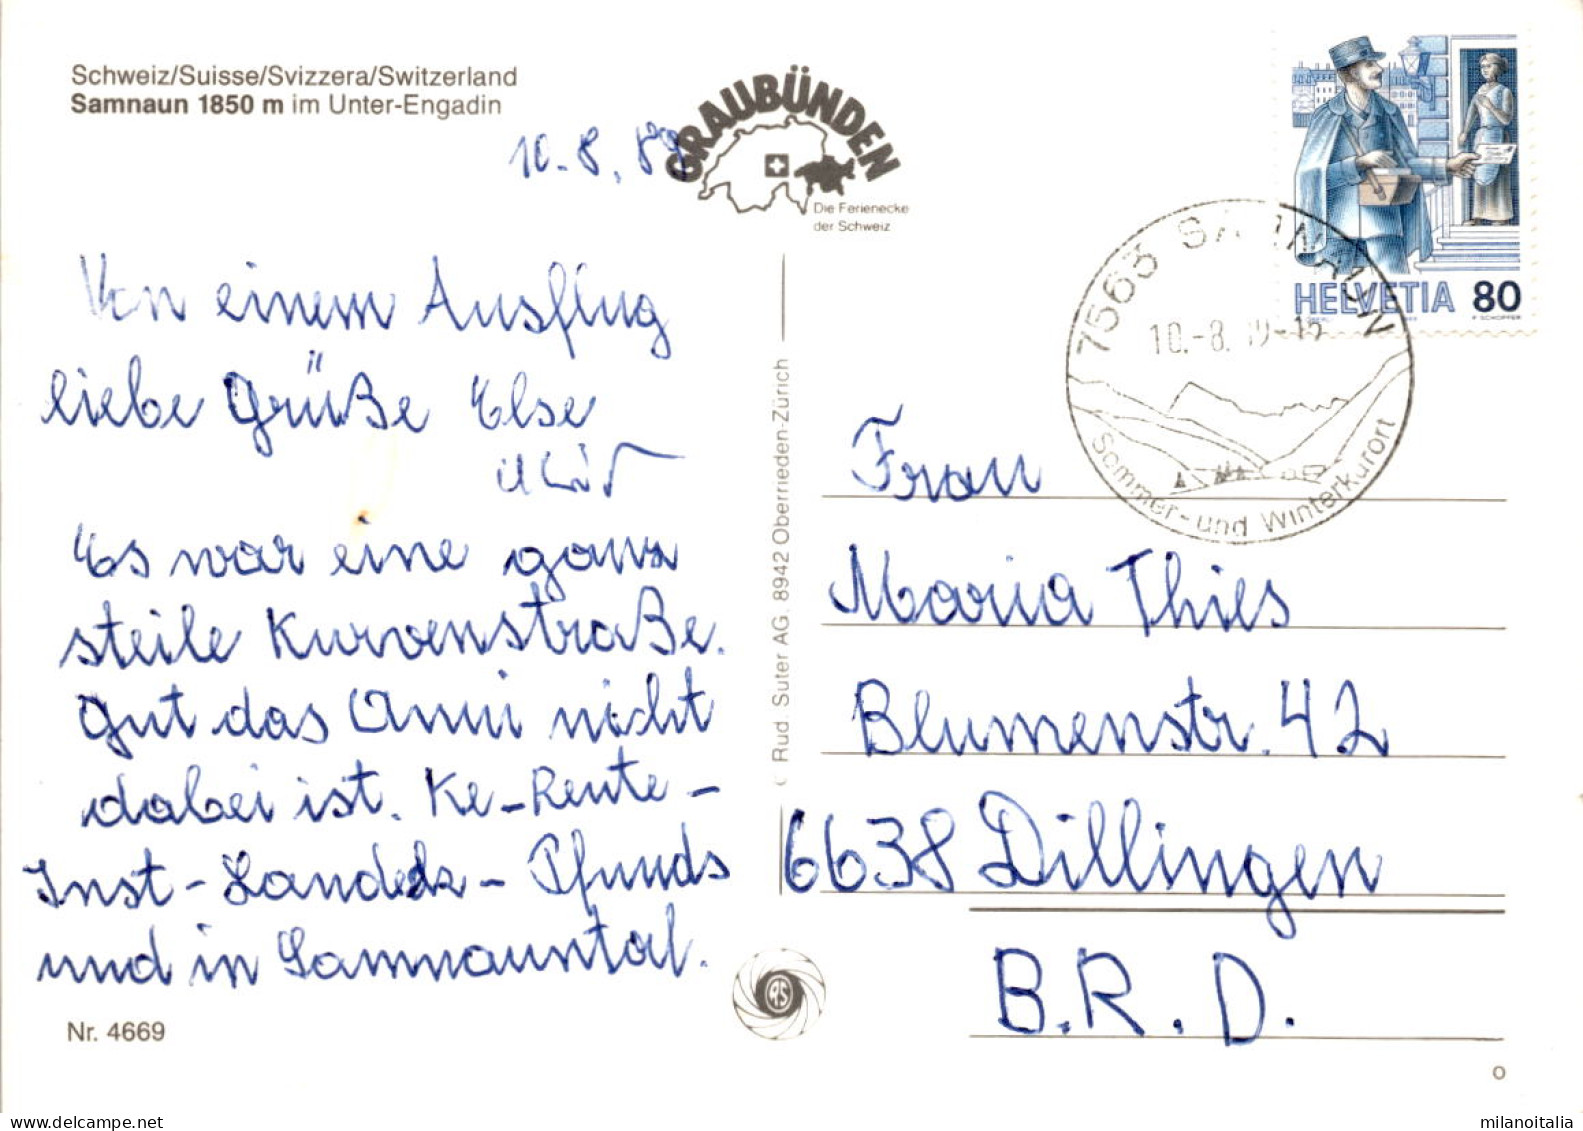 Schweiz/Suisse/Svizzera/Switzerland
Samnaun 1850 m im Unter-Engadin
10.8.89
GRAUBÜNDEN
Die Ferienecke
der Schweiz
HELVETIA 80
7563 SAMNAUN
10.-8.
Sommer- und Winterkurort
Von einem Ausflug
liebe Grüße Else
Es war eine ganz
steile Kurvenstraße.
Gut das Anni nicht
dabei ist. Ke-Reute-
Inst-Landeck-Pfunds
und in Samnauntal.
Nr. 4669
© Rud. Suter AG. 8942 Oberrieden-Zürich
Frau
Maria Thies
Blumenstr. 42
6638 Dillingen
B.R.D.
milanoitalia